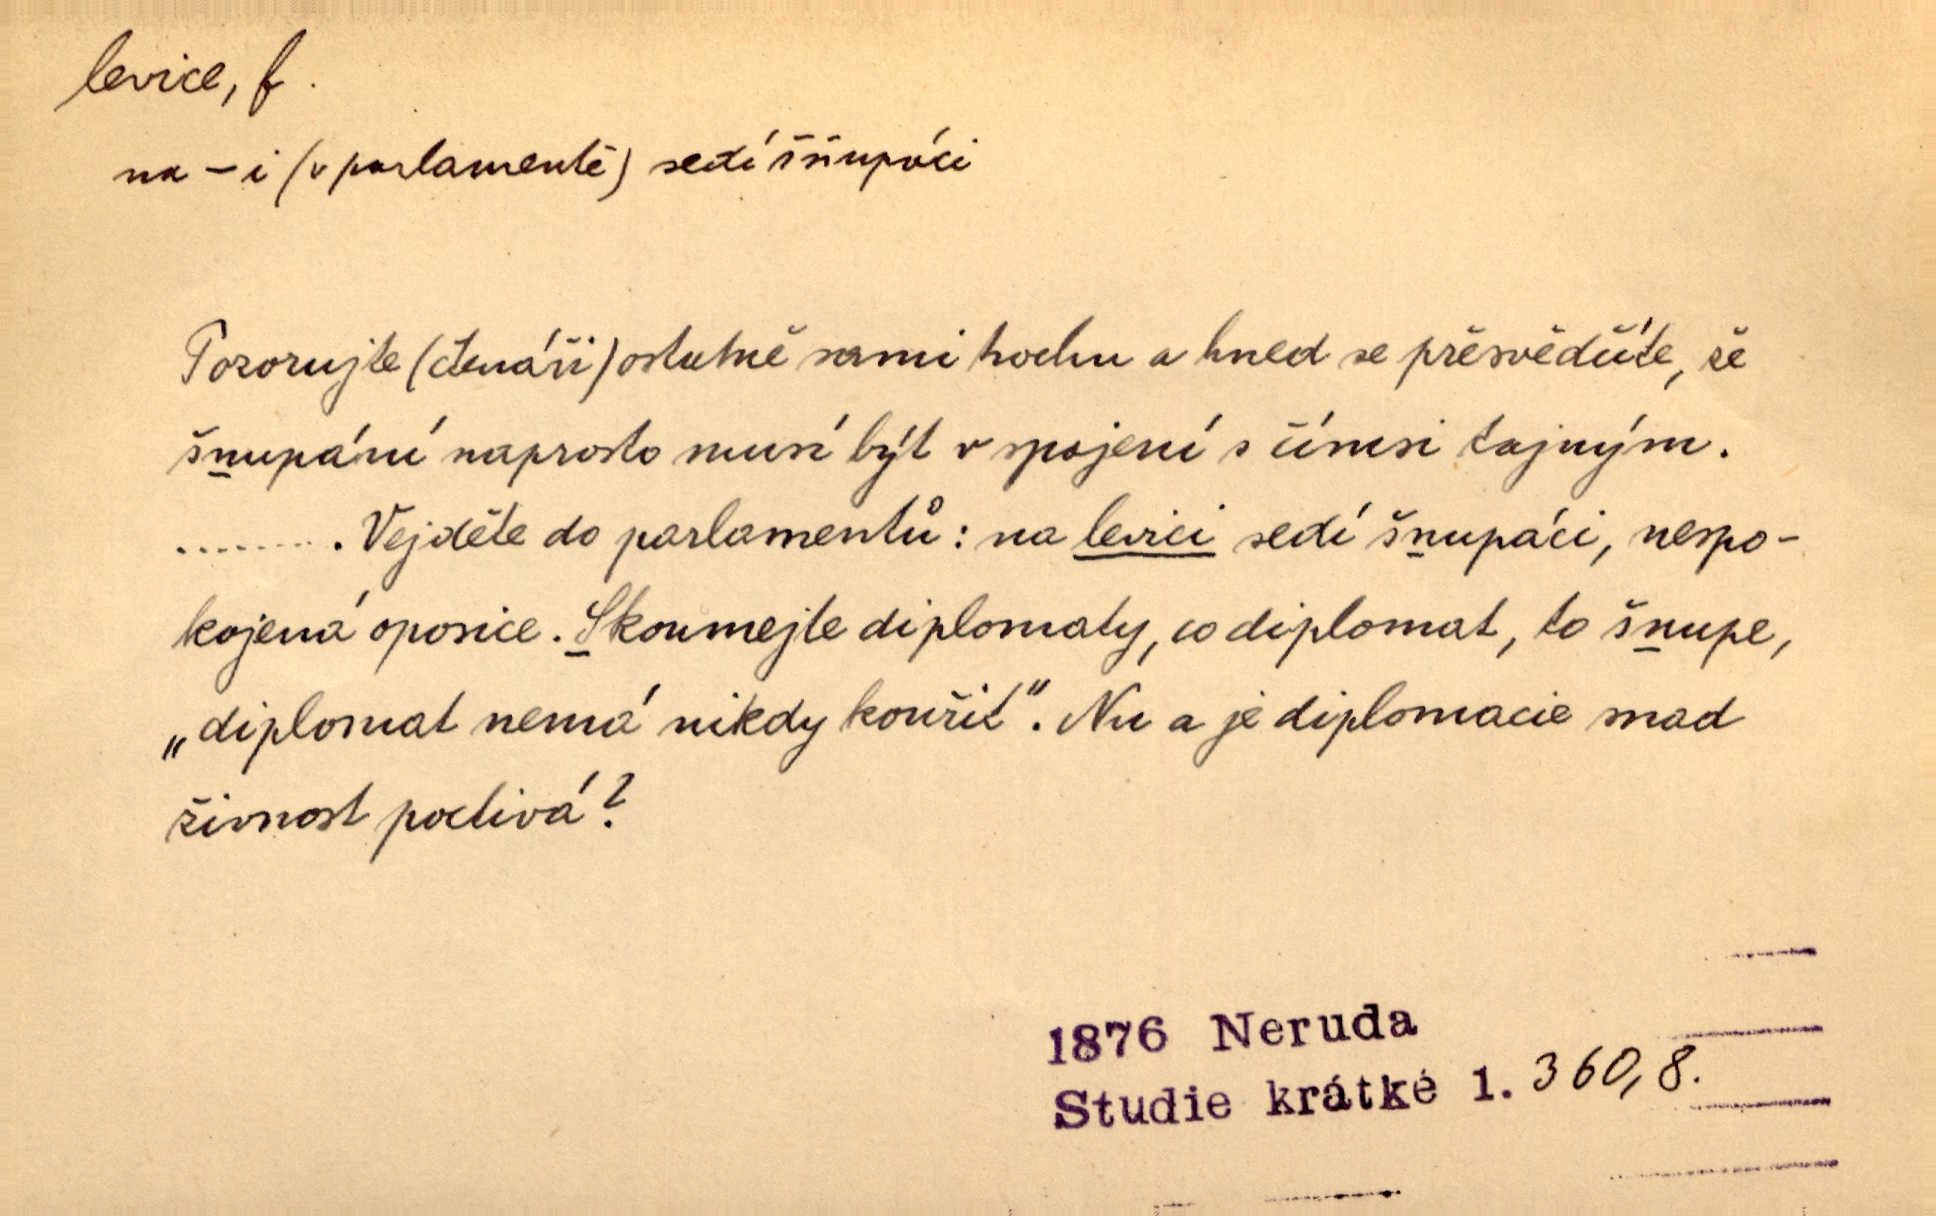 levice, f.
na – i (v parlamentě) sedí šňupáci
Pozorujte (čtenáři) ostatně sami trochu a hned se přesvědčíte, že
šnupání naprosto musí být v spojení s čímsi tajným.
........ Vejděte do parlamentů: na levici sedí šnupáci, nespo-
kojená oposice. Skoumejte diplomaty, co diplomat, to šnupe,
„diplomat nemá nikdy kouřit“. Nu a je diplomacie snad
živnost poctivá?
1876 Neruda
Studie krátké 1. 360,8.